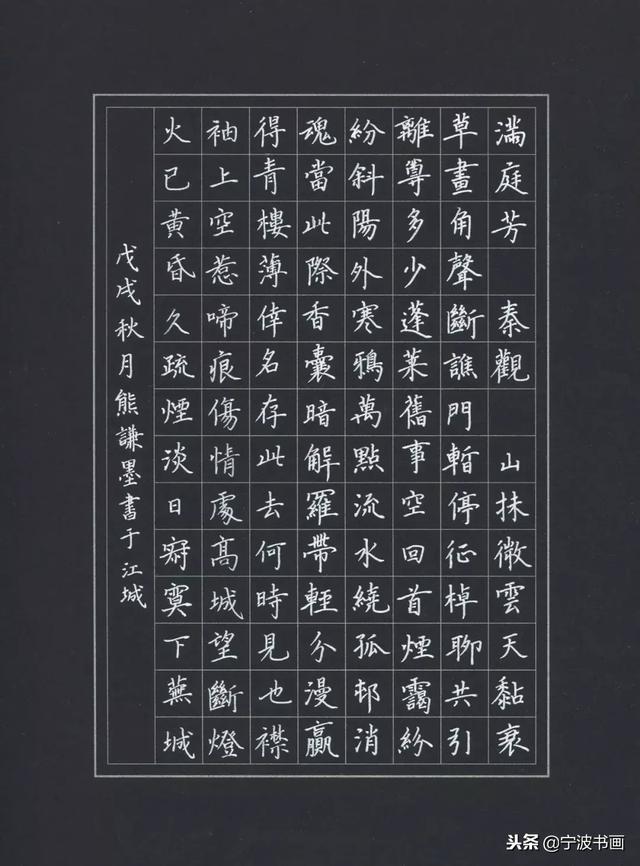 滿庭芳 秦觀 山抹微雲天黏衰
草畫角聲斷譙門暫停征棹聊共引
離尊多少蓬萊舊事空回首煙靄紛
紛斜陽外寒鴉萬點流水繞孤邨消
魂當此際香囊暗解羅帶輕分漫贏
得青樓薄倖名存此去何時見也襟
袖上空惹啼痕傷情處高城望斷燈
火已黃昏久疏煙淡日寂寞下蕪城
戊戌秋月熊謙墨書于江城
头条@宁波书画